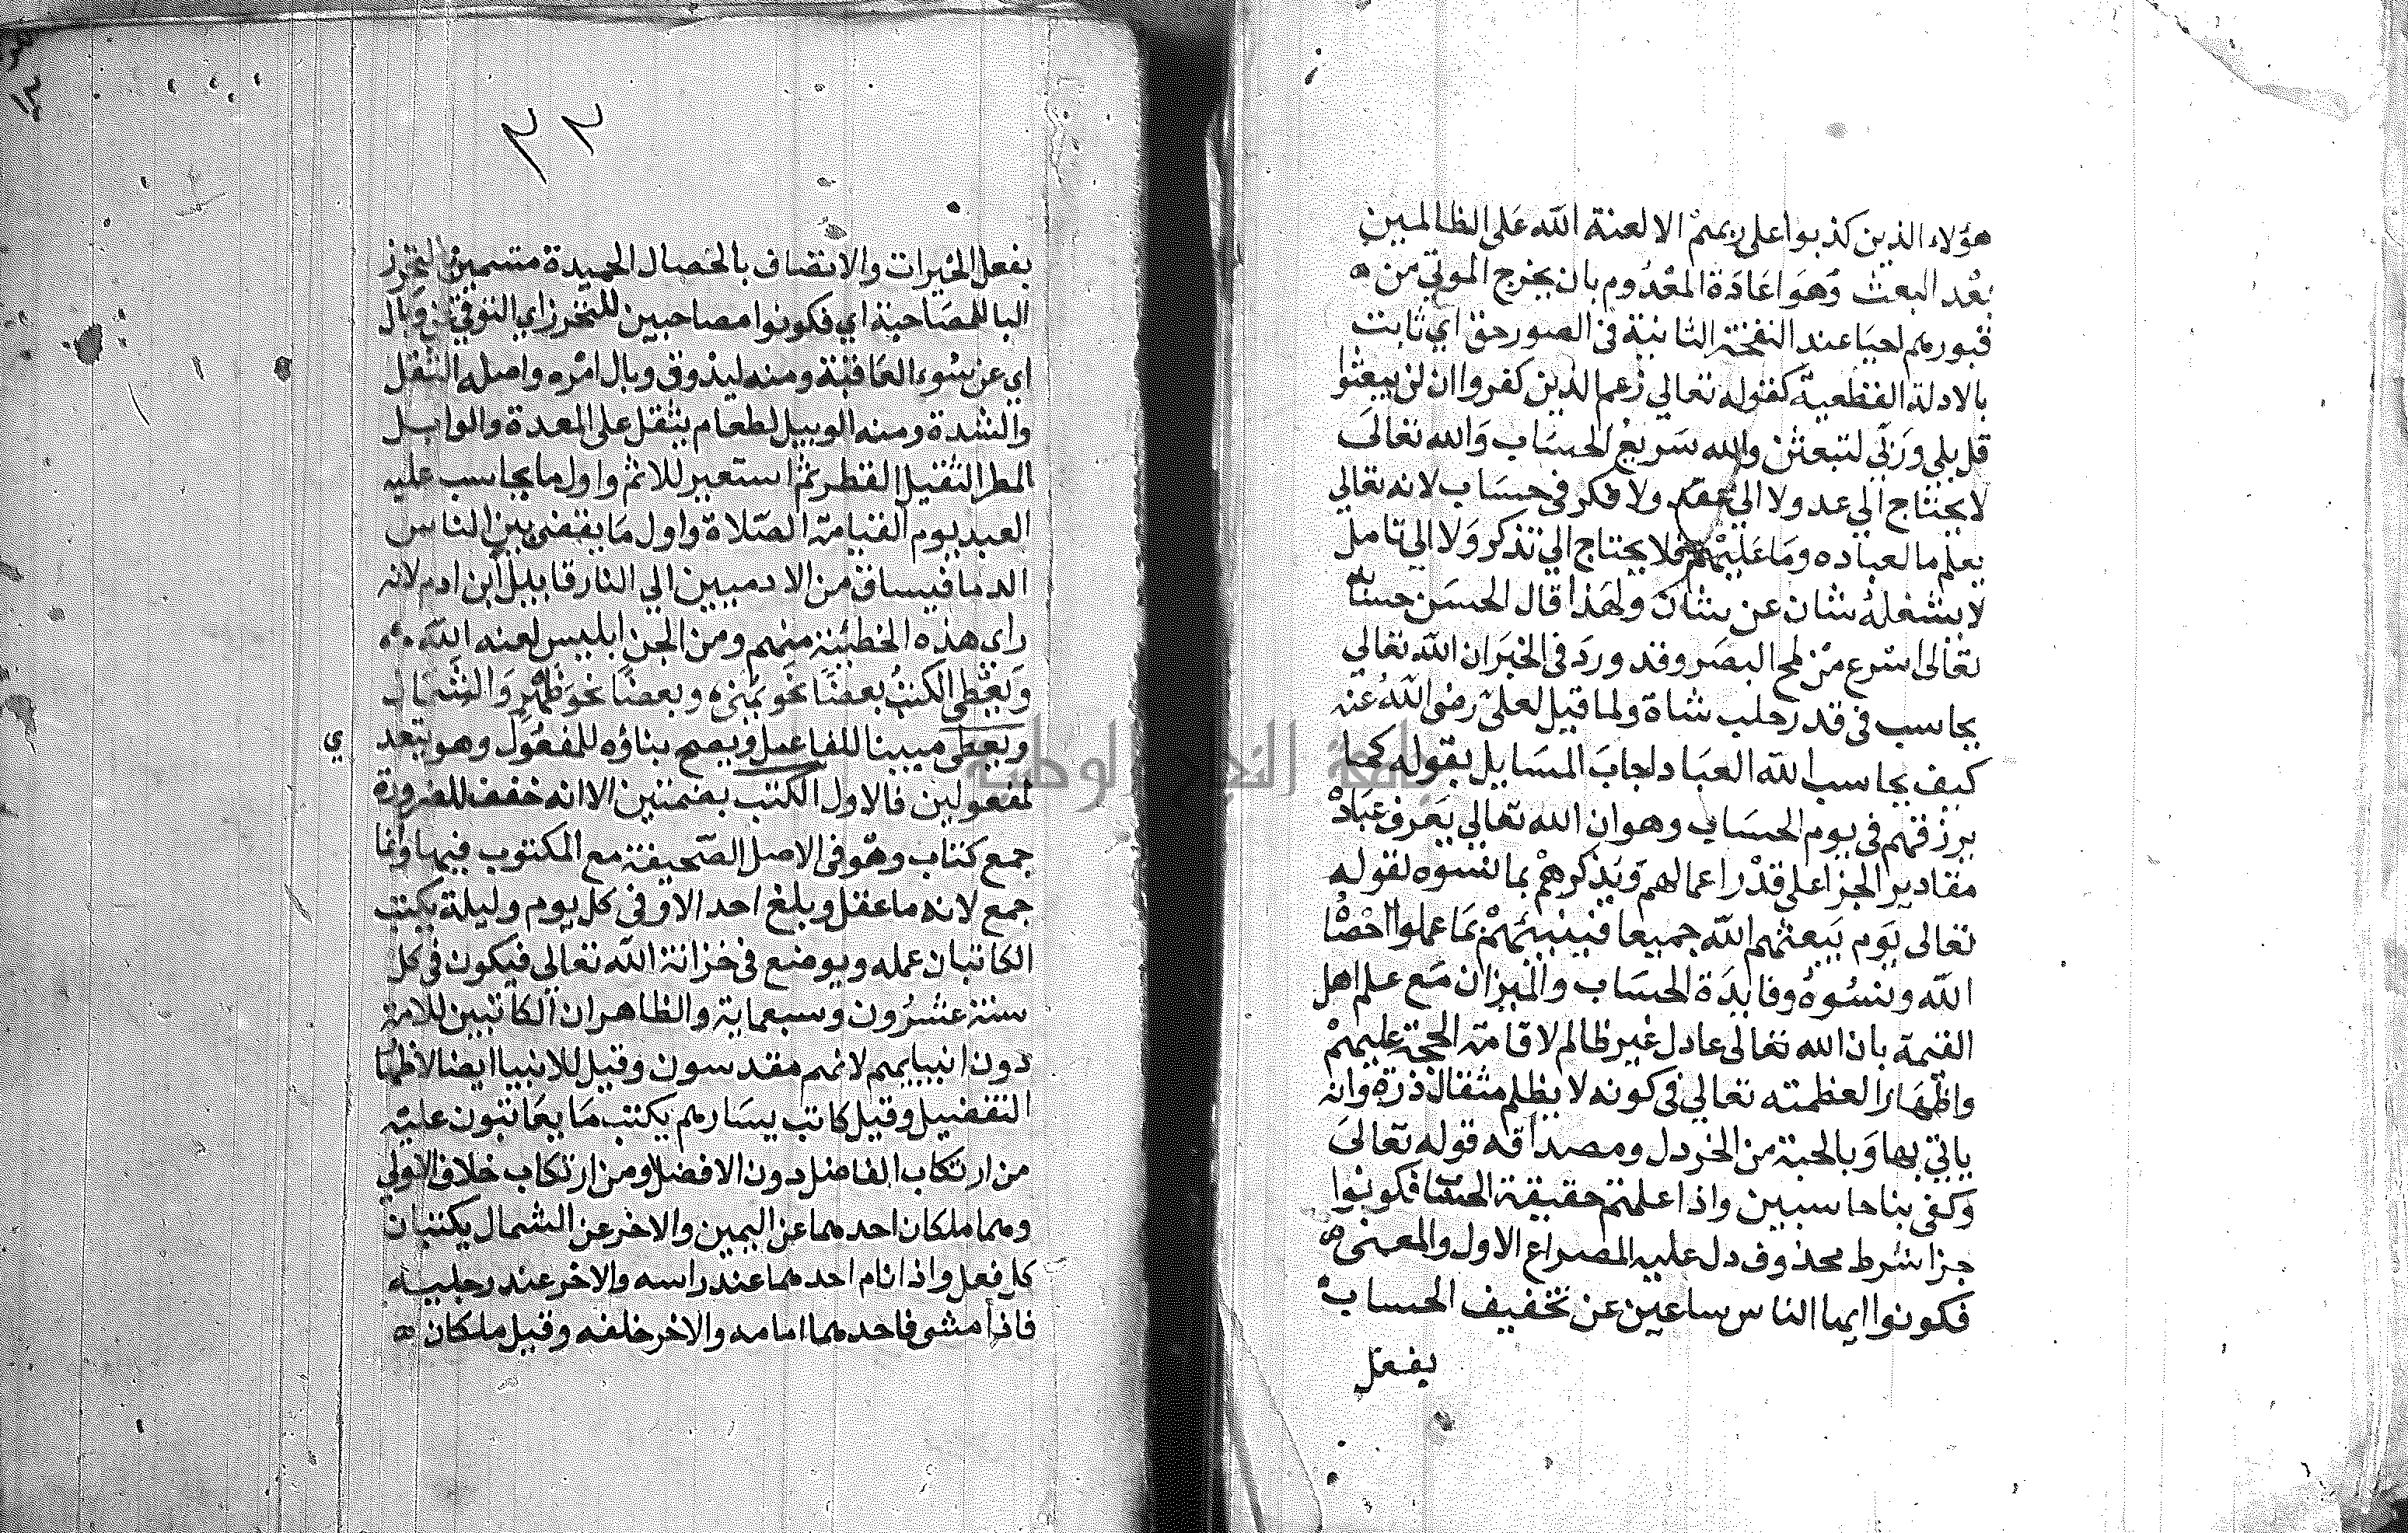 هؤلاء الذين كذبوا على ربهم الا لعنة الله على الظالمين
بعْد البعث وَهوَ اعَادَة المعْدُوم بان يخرج الموتي من
قبورهم احيَا عند النفخة الثانية فى الصور حق اي ثابت
بالادلة القطعية كقوله تعالي زعم الذين كفروا ان لن يبعثوا
قل بلي وَرَبّي لتبعثن والله سَريعُ الحسَاب وَالله تعالىَ
لا يحتاج الي عد ولا الي عقد ولا فكر فى حسَاب لانه تعالي
يعلم ما لعباده ومَا عَليْهم فلا يحتاج الي تذكر وَلا الي تامل
لا يشغلهُ شان عن شان ولهَذا قال الحسَن حسَابُ
تعَالى اسْرع من لمح البصَر وقد ورَدَ فى الخبَر ان الله تعَالي
يحاسب فى قدر حلب شاة ولما قيل لعلىّ رضى اللهُ عنه
كيف يحاسب الله العبَاد اجابَ المسَايل بقوله كما
يرزقهم فى يوم الحسَاب وهو ان الله تعَالي يَعرف عبَادهْ
مقادير الجزا على قدْر اعمالهم وَيذكرهمْ بما نسوه لقوله
تعالى يَوم يَبعثهم الله جميعا فينبئهمْ بمَا عملوا احْصَاهُ
الله ونسُوهُ وفايدَة الحسَاب والميزان مَع علم اهل
القيمة بان الله تعَالى عادل غير ظالم لاقامَة الحجة عليهمْ
واظهَارا لعظمته تعالي فى كونه لا يظلم مثقال ذرة وانه
ياتي بها وَبالحبة من الخردل ومصداقه قوله تعالىَ
وَكفى بنا حاسبين واذا علمتم حقيقة الحسَاب فكونوا
جزا شرط محذوف دل عليه المصراع الاول والمعنى
فكونوا ايها الناس ساعين عن تخفيف الحساب
بفعل
٣٣
بفعل الخيرات والاتصاف بالخصال الحميدة متسمين بالتحرز
البا للمصَاحبة اي فكونوا مصاحبين للتحرز اي التوقي عن وَبال
اي عن سُوء العَاقبَة ومنه ليذوق وبال امْره واصله الثقل
والشدة ومنه الوبيل لطعام يثقل على المعدة والوابل
المطر الثقيل القطر ثم استعير للاثم واول ما يحاسب عليه
العبد يوم القيامة الصَلاة واول مَا يقضى بين الناس
الدما فيساق من الادميين الي النار قابيل ابن ادم لانه
راي هذه الخطيئة منهم ومن الجن ابليس لعنه الله
وَيعْطى الكتبُ بعضًا نحوَ يمنى وبعضًا نحوَ ظهْرٍ وَالشمَال
ويعطى مبينا للفاعل ويصح بناؤه للمفعُول وهو يتعدي
لمفعولين فالاول الكتب بضمتين الا انه خفف للضرورة
جمع كتاب وهو فى الاصل الصَحيفة مع المكتوب فيها وانما
جمع لانه ما عقل وبلغ احد الا وفى كل يوم وليلة يكتب
الكاتبان عمله ويوضع فى خزانة الله تعالي فيكون فى كل
سنة عشرُون وسبعماية والظاهر ان الكاتبين للامة
دون انبيايهم لانهم مقدسون وقيل للانبيا ايضا لاظهار
التفضيل وقيل كاتب يسَارهم يكتب مَا يعَاتبون عليْه
من ارتكاب الفاضل دون الافضل ومن ارتكاب خلاف الاولي
وهما ملكان احدهما عن اليمين والاخر عن الشمال يكتبان
كل فعل واذا نام احدهما عند راسه والاخر عند رجليه
فاذا مشى فاحدهما امامه والاخر خلفه وقيل ملكان